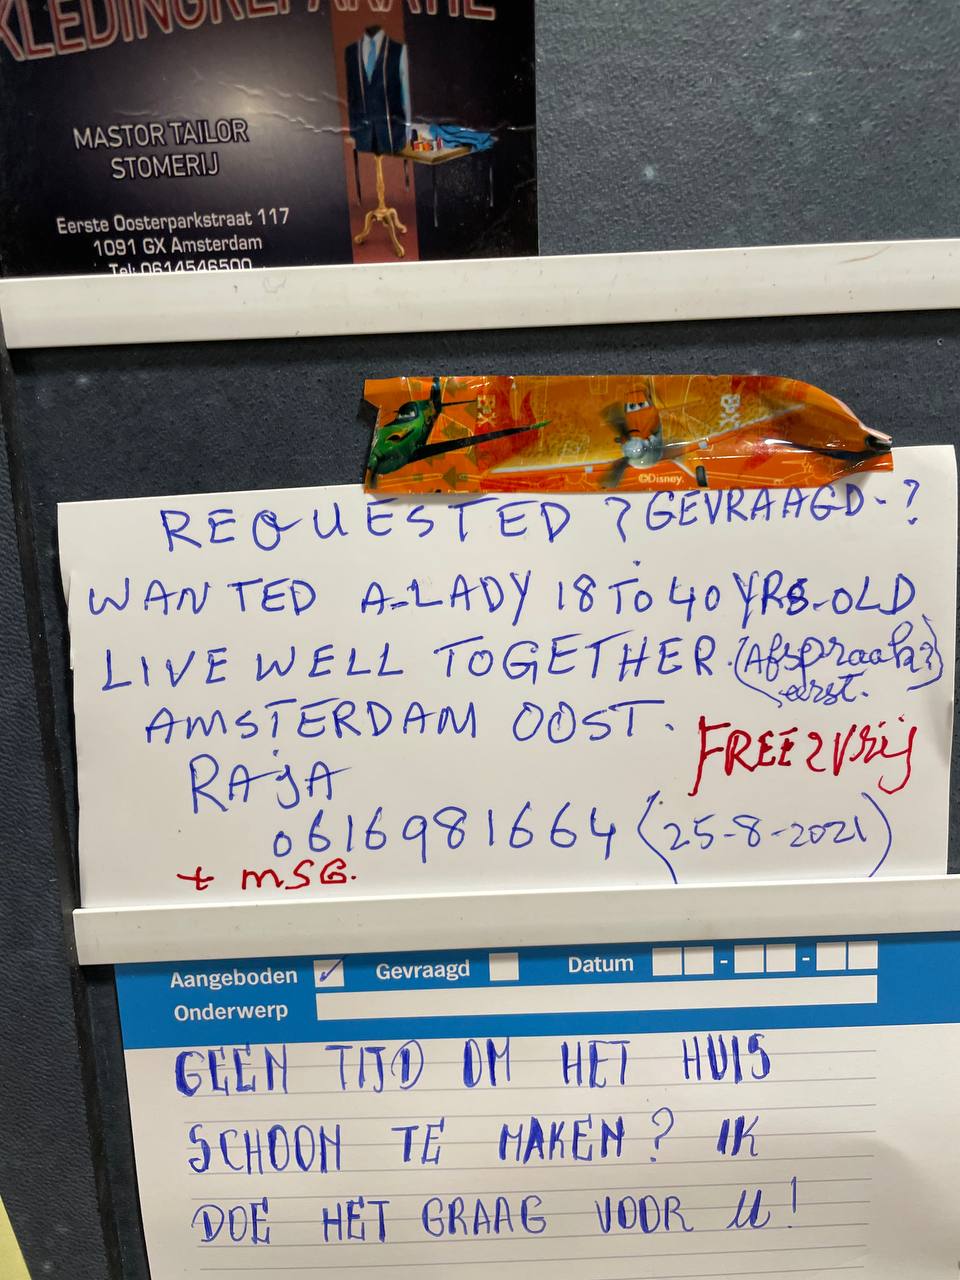 KLEDINGREPARATIE
MASTOR TAILOR
STOMERIJ
Eerste Oosterparkstraat 117
1091 GX Amsterdam
Tel: 0614546500
©Disney.
REQUESTED ? GEVRAAGD-?
WANTED A-LADY 18 TO 40 YRS-OLD
LIVE WELL TOGETHER. (Afspraak?)
eerst.
AMSTERDAM OOST.
FREE 2 Vrij
RAJA
0616981664 (25-8-2021)
+ MSG.
Aangeboden Gevraagd Datum - -
Onderwerp
GEEN TIJD OM HET HUIS
SCHOON TE MAKEN? IK
DOE HET GRAAG VOOR U!